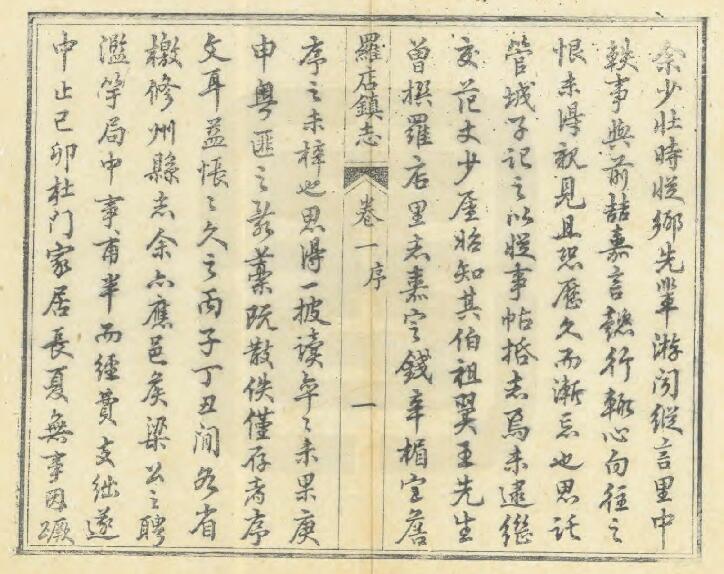 余少壯時從鄉先輩游閒縱言里中
軼事與前喆嘉言懿行輒心向往之
恨未得親見且恐歷久而漸忘也思託
管城子記之以從事帖括志焉未逮繼
交范丈少厓昭知其伯祖翼王先生
曾撰羅店里志嘉定錢辛楣宮詹
羅店鎮志
卷一 序
一
序之未梓也思得一披讀卒卒未果庚
申粵匪之亂藁既散佚僅存者序
文耳益悵悵久之丙子丁丑間各省
檄修州縣志余亦應邑矦梁公之聘
濫竽局中事甫半而經費支絀遂
中止己卯杜門家居長夏無事因蹶